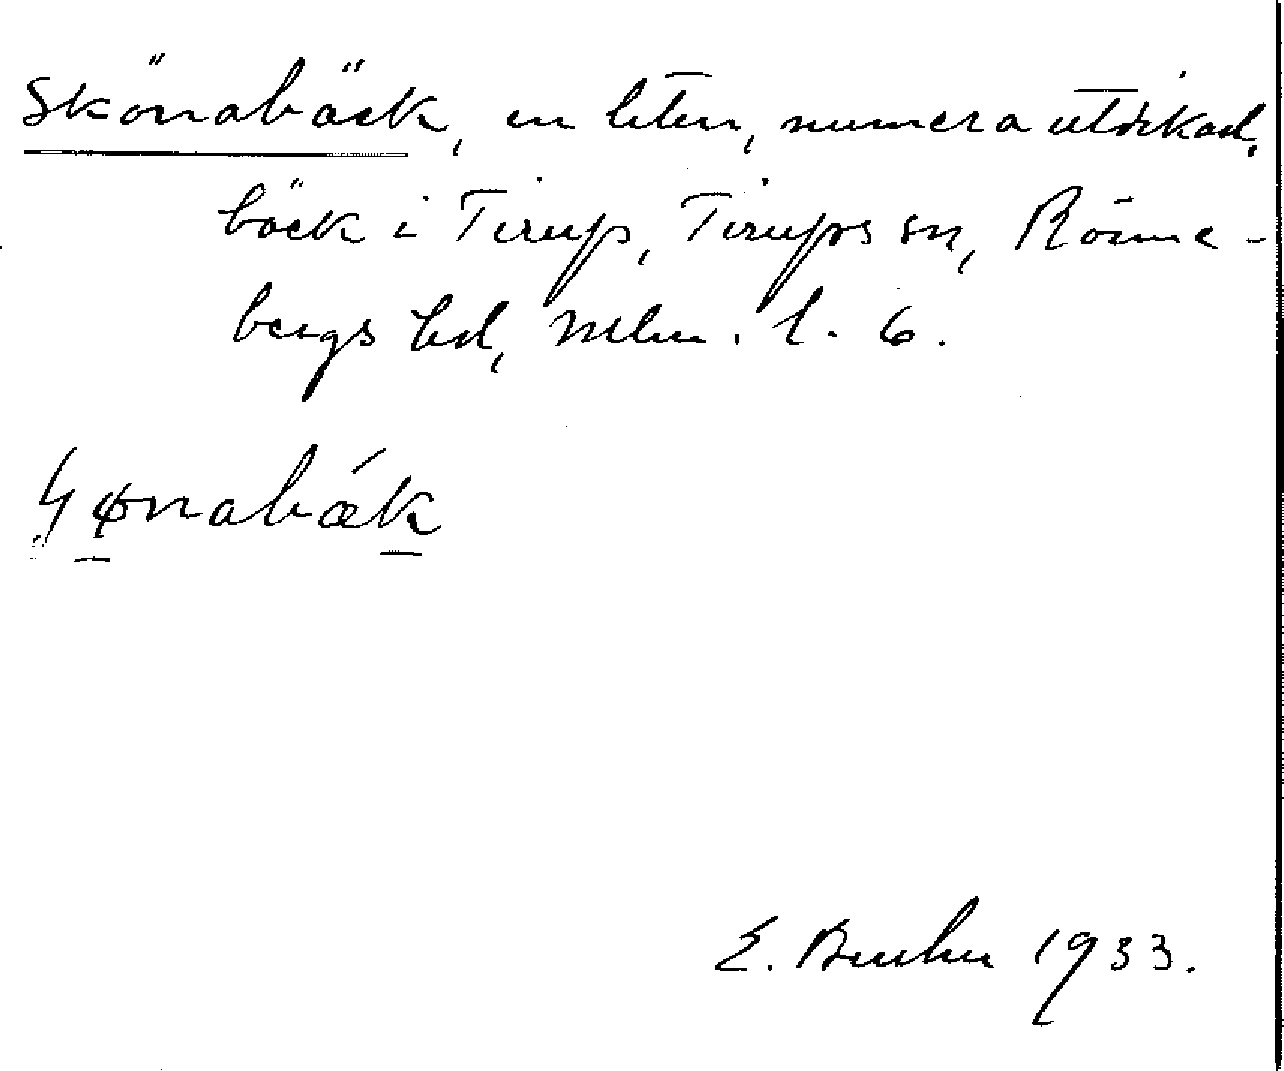 Skönabäck, en liten, numera utdikad
bäck i Tirup, Tirups sn, Rönne-
bergs hd, Mlm. l. 6.
ɧønabǽk
E. 1933.